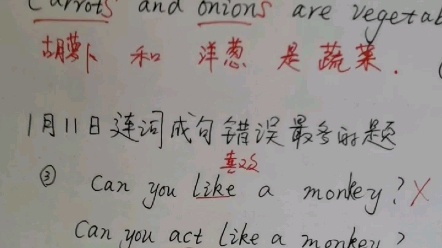 Carrots and onions are vegetab
胡萝卜 和 洋葱 是 蔬菜.
1月11日连词成句错误最多的题
③ Can you like a monkey? ×
Can you act like a monkey?